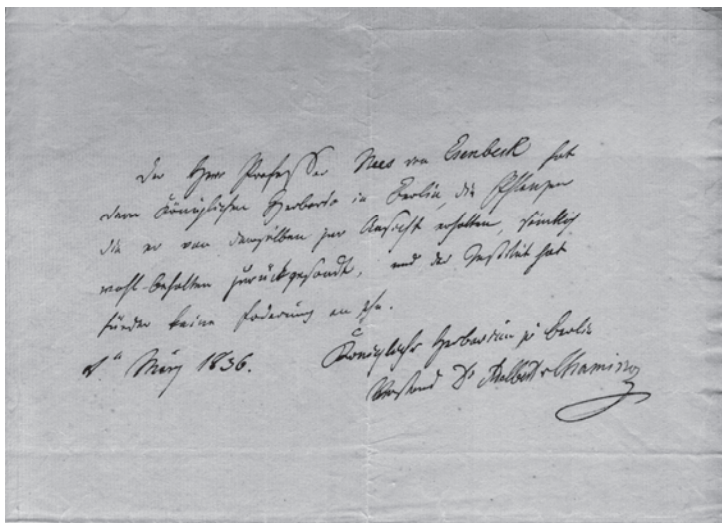 Der Herr Professor Nees von Esenbeck hat
dem Königlichen Herbario in Berlin die Pflanzen
die er von demselben zur Ansicht erhalten, sämtlich
wohl behalten zurückgesandt, und das Institut hat
fürder keine Foderung an ihn.
März 1836. Königliches Herbarium zu Berlin
Vorstand Dr Adelbert v Chamisso